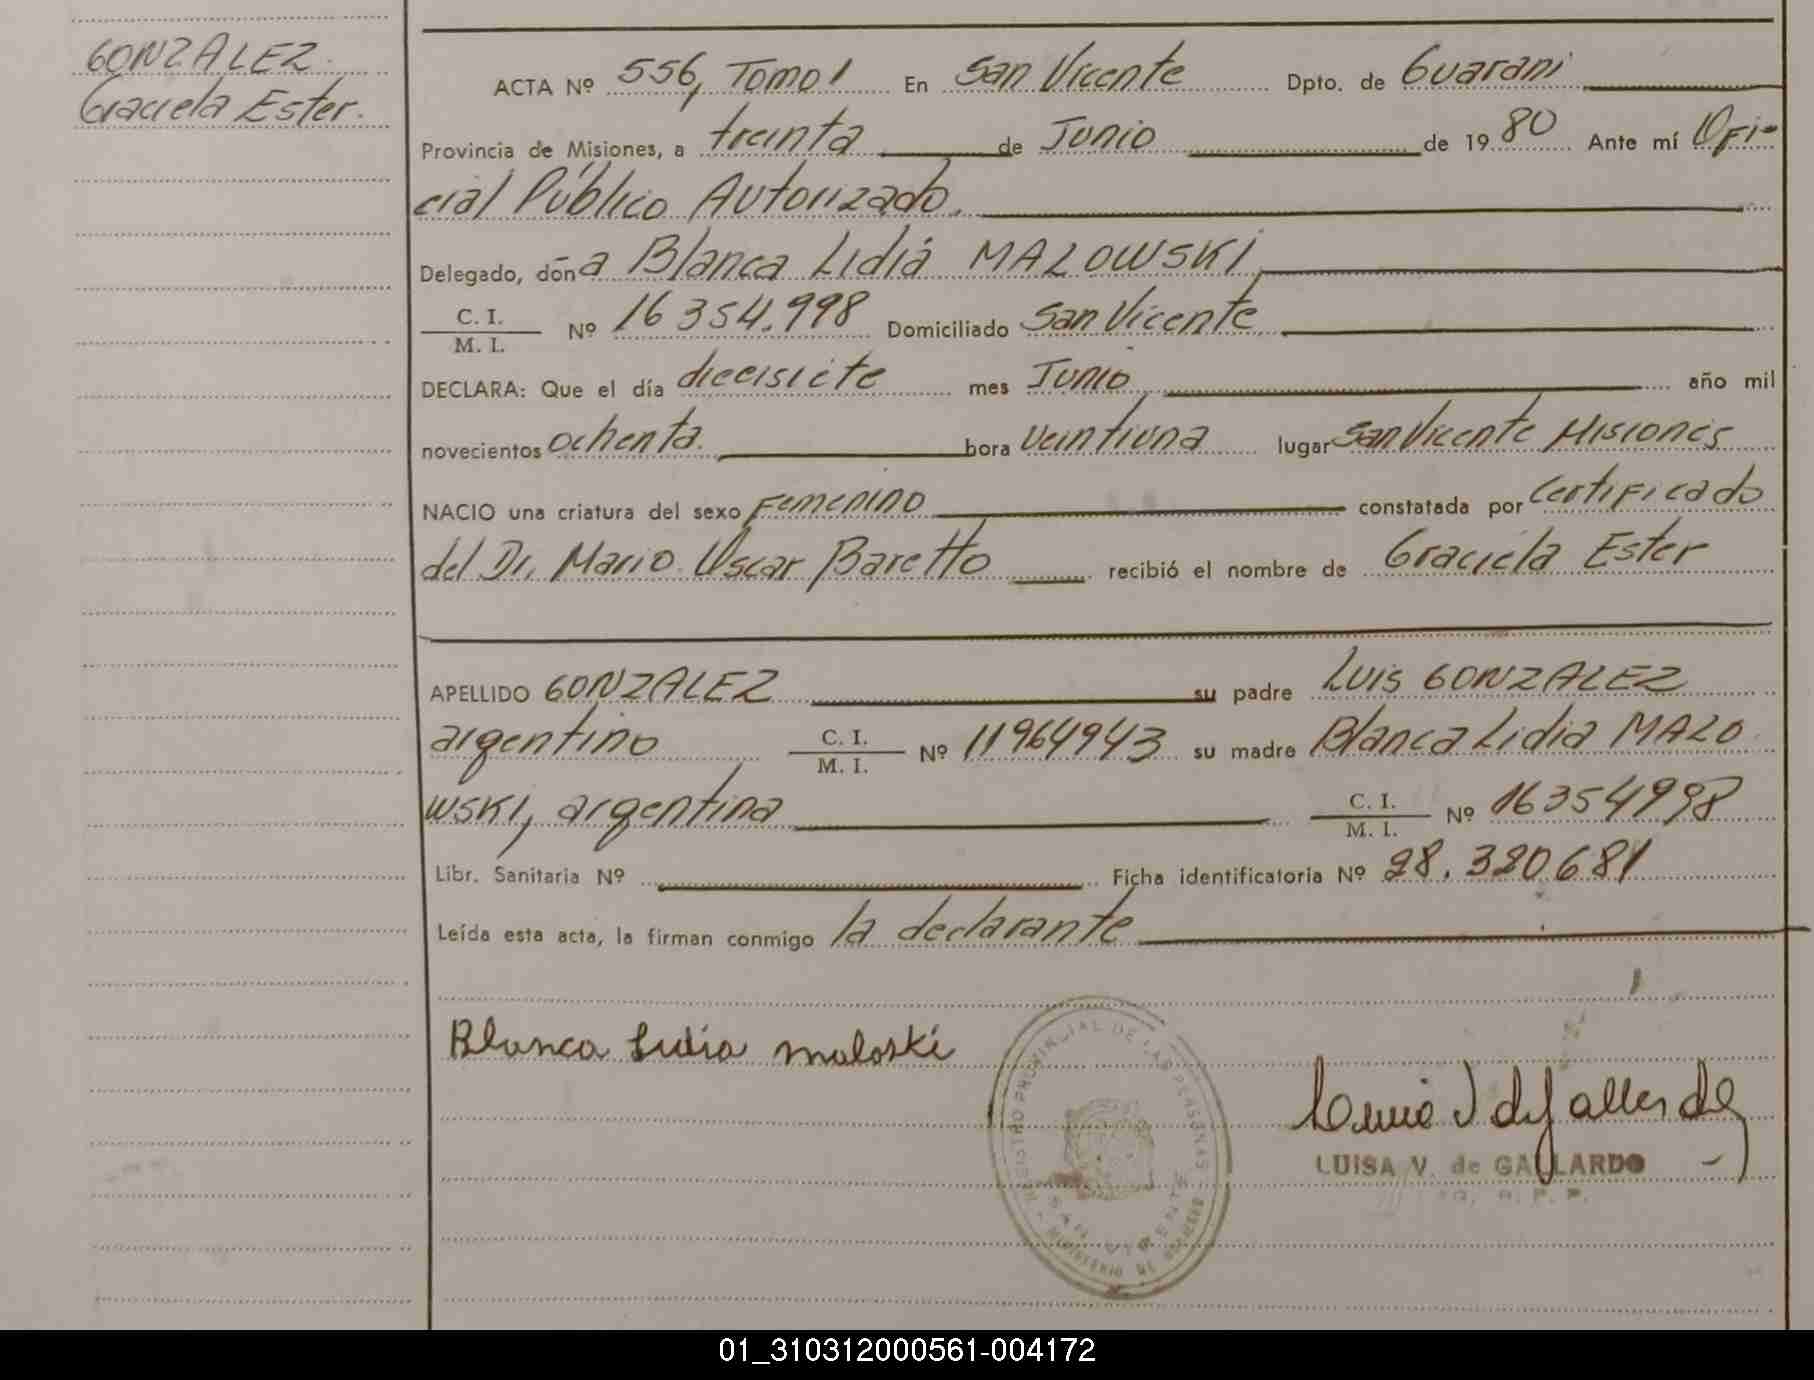 GONZALEZ
Graciela Ester.
ACTA Nº 556, Tomo I En San Vicente Dpto. de Guarani
Provincia de Misiones, a treinta de Junio de 1980 Ante mí Ofi-
cial Público Autorizado.
Delegado, doña Blanca Lidia MALOWSKI
C. I.
M. I. Nº 16354.998 Domiciliado San Vicente
DECLARA: Que el día diecisiete mes Junio año mil
novecientos ochenta. hora veintiuna lugar San Vicente Misiones
NACIO una criatura del sexo Femenino constatada por Certificado
del Dr. Mario Oscar Baretto recibió el nombre de Graciela Ester
APELLIDO GONZALEZ su padre Luis GONZALEZ
argentino C. I.
M. I. Nº 11964943 su madre Blanca Lidia MALO
WSKI, argentina C. I.
M. I. Nº 16354998
Libr. Sanitaria Nº Ficha identificatoria Nº 28.320681
Leída esta acta, la firman conmigo la declarante
Blanca Lidia maloski
REGISTRO PROVINCIAL DE LAS PERSONAS
SAN VICENTE
MINISTERIO DE GOBIERNO
LUISA V. de GALLARDO
01_310312000561-004172